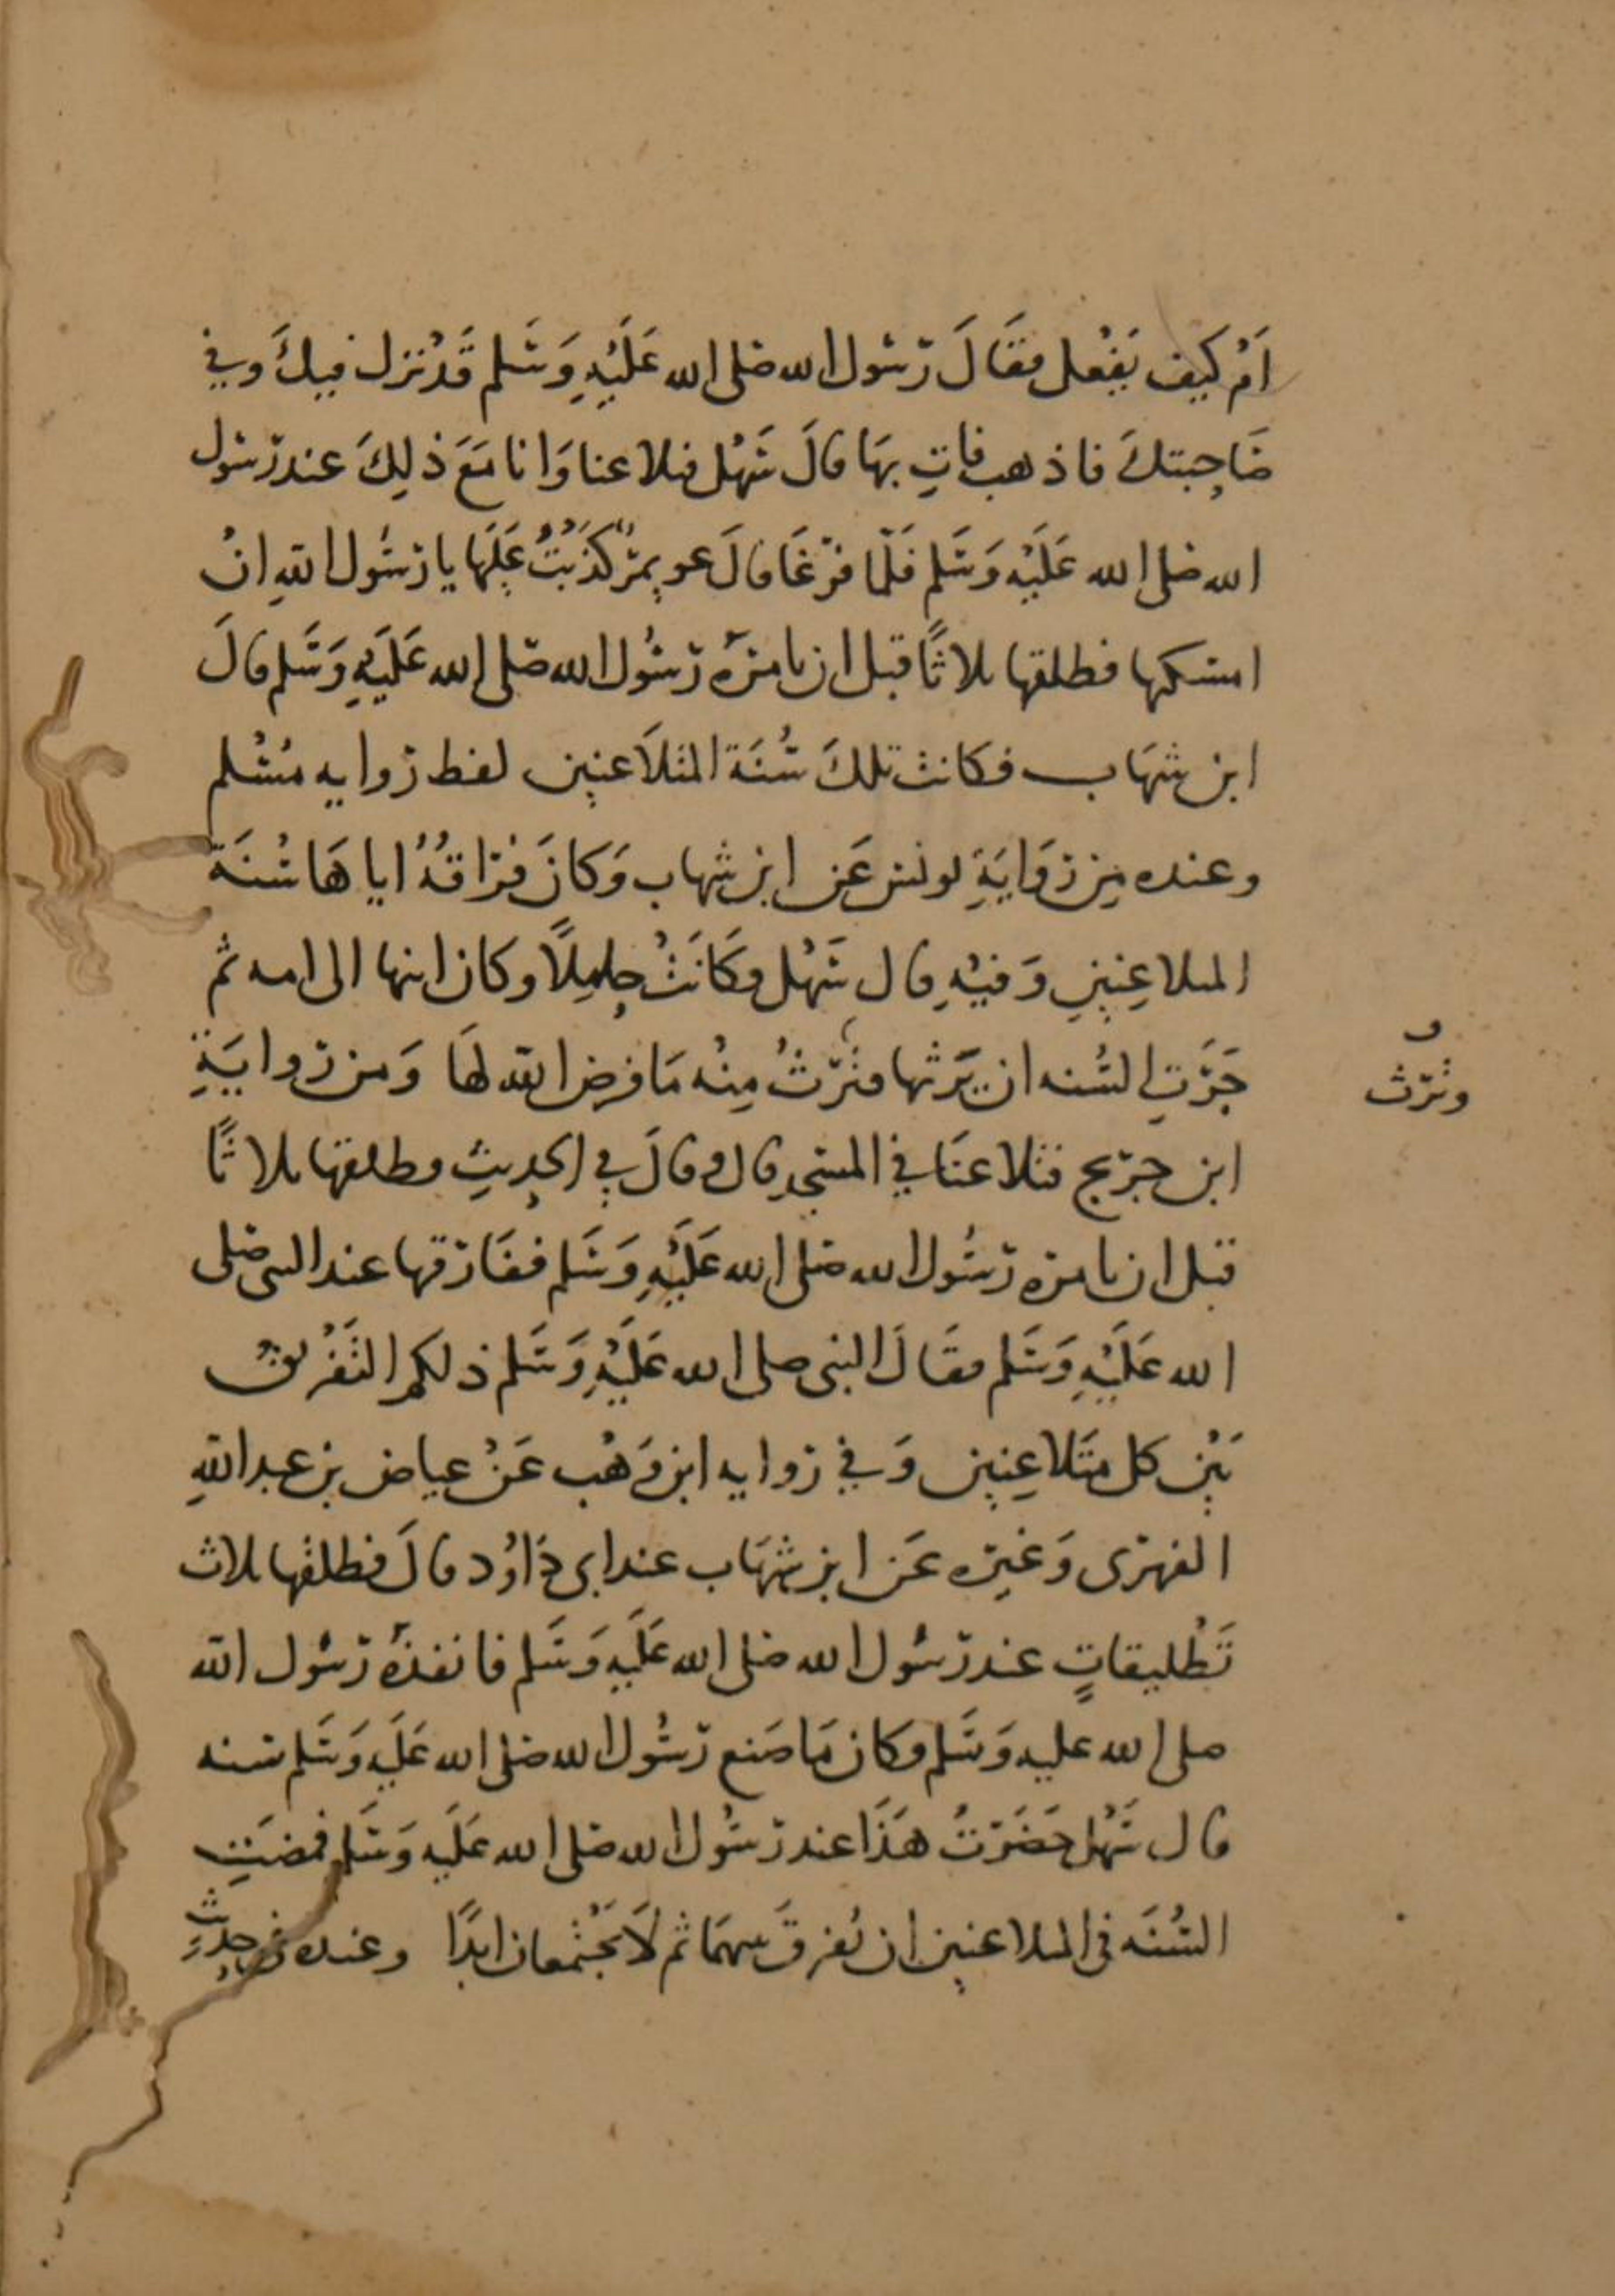 اَمْ كَيف يَفْعل فقَالَ رَسُول الله صَلى الله عَلَيْهِ وَسَلم قَدْ نزل فيكَ وَفي
صَاحِبتكَ فاذهب فاتِ بهَا قالَ سَهْل فتلاعنا وَانا مَعَ ذلِكَ عند رَسُول
الله صَلى الله عَلَيْه وَسَلم فَلَمّا فرَغَا قالَ عويمرٌ كَذَبْتُ عَلَيها يا رَسُول اللهِ انْ
امسكها فطلقها ثلاثًا قبل ان يامرَه رَسُول الله صَلى الله عَلَيهِ وَسَلم قالَ
ابن شهَاب فكانت تلكَ سُنَة المتلَاعنين لفظ روايه مُسْلم
وعنده مِن رِوَايَةِ يونس عَن ابن شهاب وَكانَ فرَاقُهُ اياهَا سُنَة
المتلاعِنينِ وَفيْهِ قال سَهْل فكَانَتْ حامِلًا وكان ابنها الى امه ثم
جَرَتِ السُنه ان يَرَثها فترَثُ مِنْه مَا فرض الله لهَا وَمن روايَةِ
وترَث
ابن جرَيج فتلاعنَا في المسْجِدِ قال وقالَ في الحدِيثِ فطلقها ثلاثًا
قبل ان يامرَه رَسُول الله صَلى الله عَلَيْهِ وَسَلم ففَارَقها عند النبى صَلى
الله عَلَيْهِ وَسَلم فقَالَ النبى صلى الله عَلَيْهِ وَسَلم ذلكم التَفْريقُ
بَيْن كل متَلاعِنين وَفي روايه ابن وَهْب عَنْ عياض بن عبد اللهِ
الفهرَى وَغيرَه عَن ابن شهَاب عند ابى دَاوُد قالَ فطلقها ثلاث
تَطْليقاتٍ عند رَسُول الله صَلى الله عَلَيهِ وَسَلم فانفذَه رَسُول الله
صلى الله عليه وَسَلم وكان مَا صَنع رَسُول الله صَلى الله عَلَيه وَسَلم سنه
قال سَهْل حَضَرَتُ هَذَا عند رَسُول الله صَلى الله عَلَيه وَسَلم فمضَتِ
السُنَه فى المتلاعنين ان يُفرقَ بينهمَا ثم لَا يَجْتمعان ابدًا وعنده في حدِيثِ